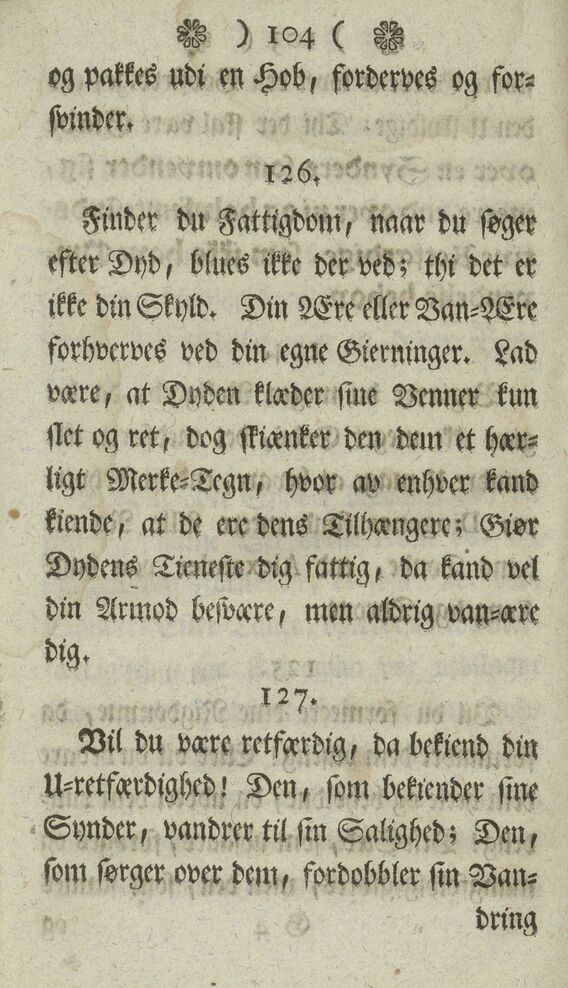 ) 104 (
og pakkes udi en Hob, forderves og for=
svinder.
126.
Finder du Fattigdom, naar du søger
efter Dyd, blues ikke der ved; thi det er
ikke din Skyld. Din Ære eller Van=Ære
forhverves ved din egne Gierninger. Lad
være, at Dyden klæder sine Venner kun
slet og ret, dog skiænker den dem et hær=
ligt Merke=Tegn, hvor av enhver kand
kiende, at de ere dens Tilhængere; Giør
Dydens Tieneste dig fattig, da kand vel
din Armod besvære, men aldrig van=ære
dig.
127.
Vil du være retfærdig, da bekiend din
U=retfærdighed! Den, som bekiender sine
Synder, vandrer til sin Salighed; Den,
som sørger over dem, fordobbler sin Van=
dring